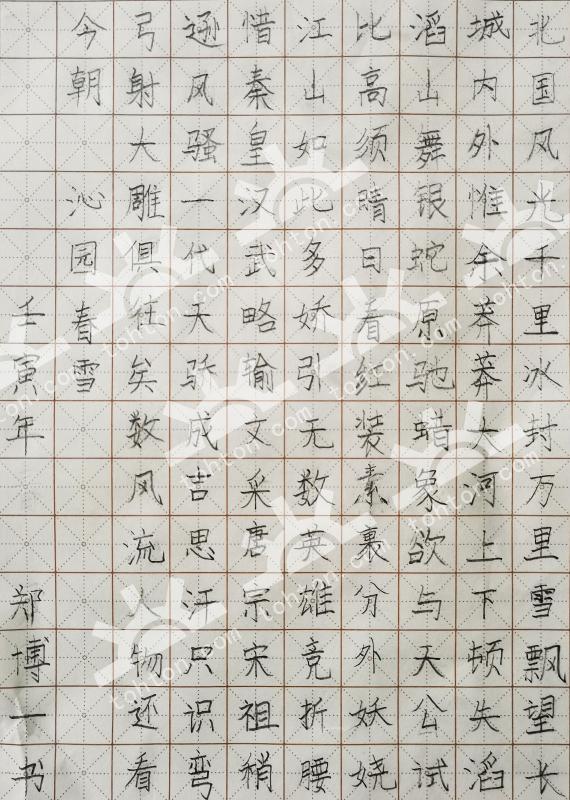 北国风光千里冰封万里雪飘望长
城内外惟余莽莽大河上下顿失滔
滔山舞银蛇原驰蜡象欲与天公试
比高须晴日看红装素裹分外妖娆
江山如此多娇引无数英雄竞折腰
惜秦皇汉武略输文采唐宗宋祖稍
逊风骚一代天骄成吉思汗只识弯
弓射大雕俱往矣数风流人物还看
今朝 沁园春雪
壬寅年 郑博一书
tohton.com
tohton.com
tohton.com
tohton.com
tohton.com
tohton.com
tohton.com